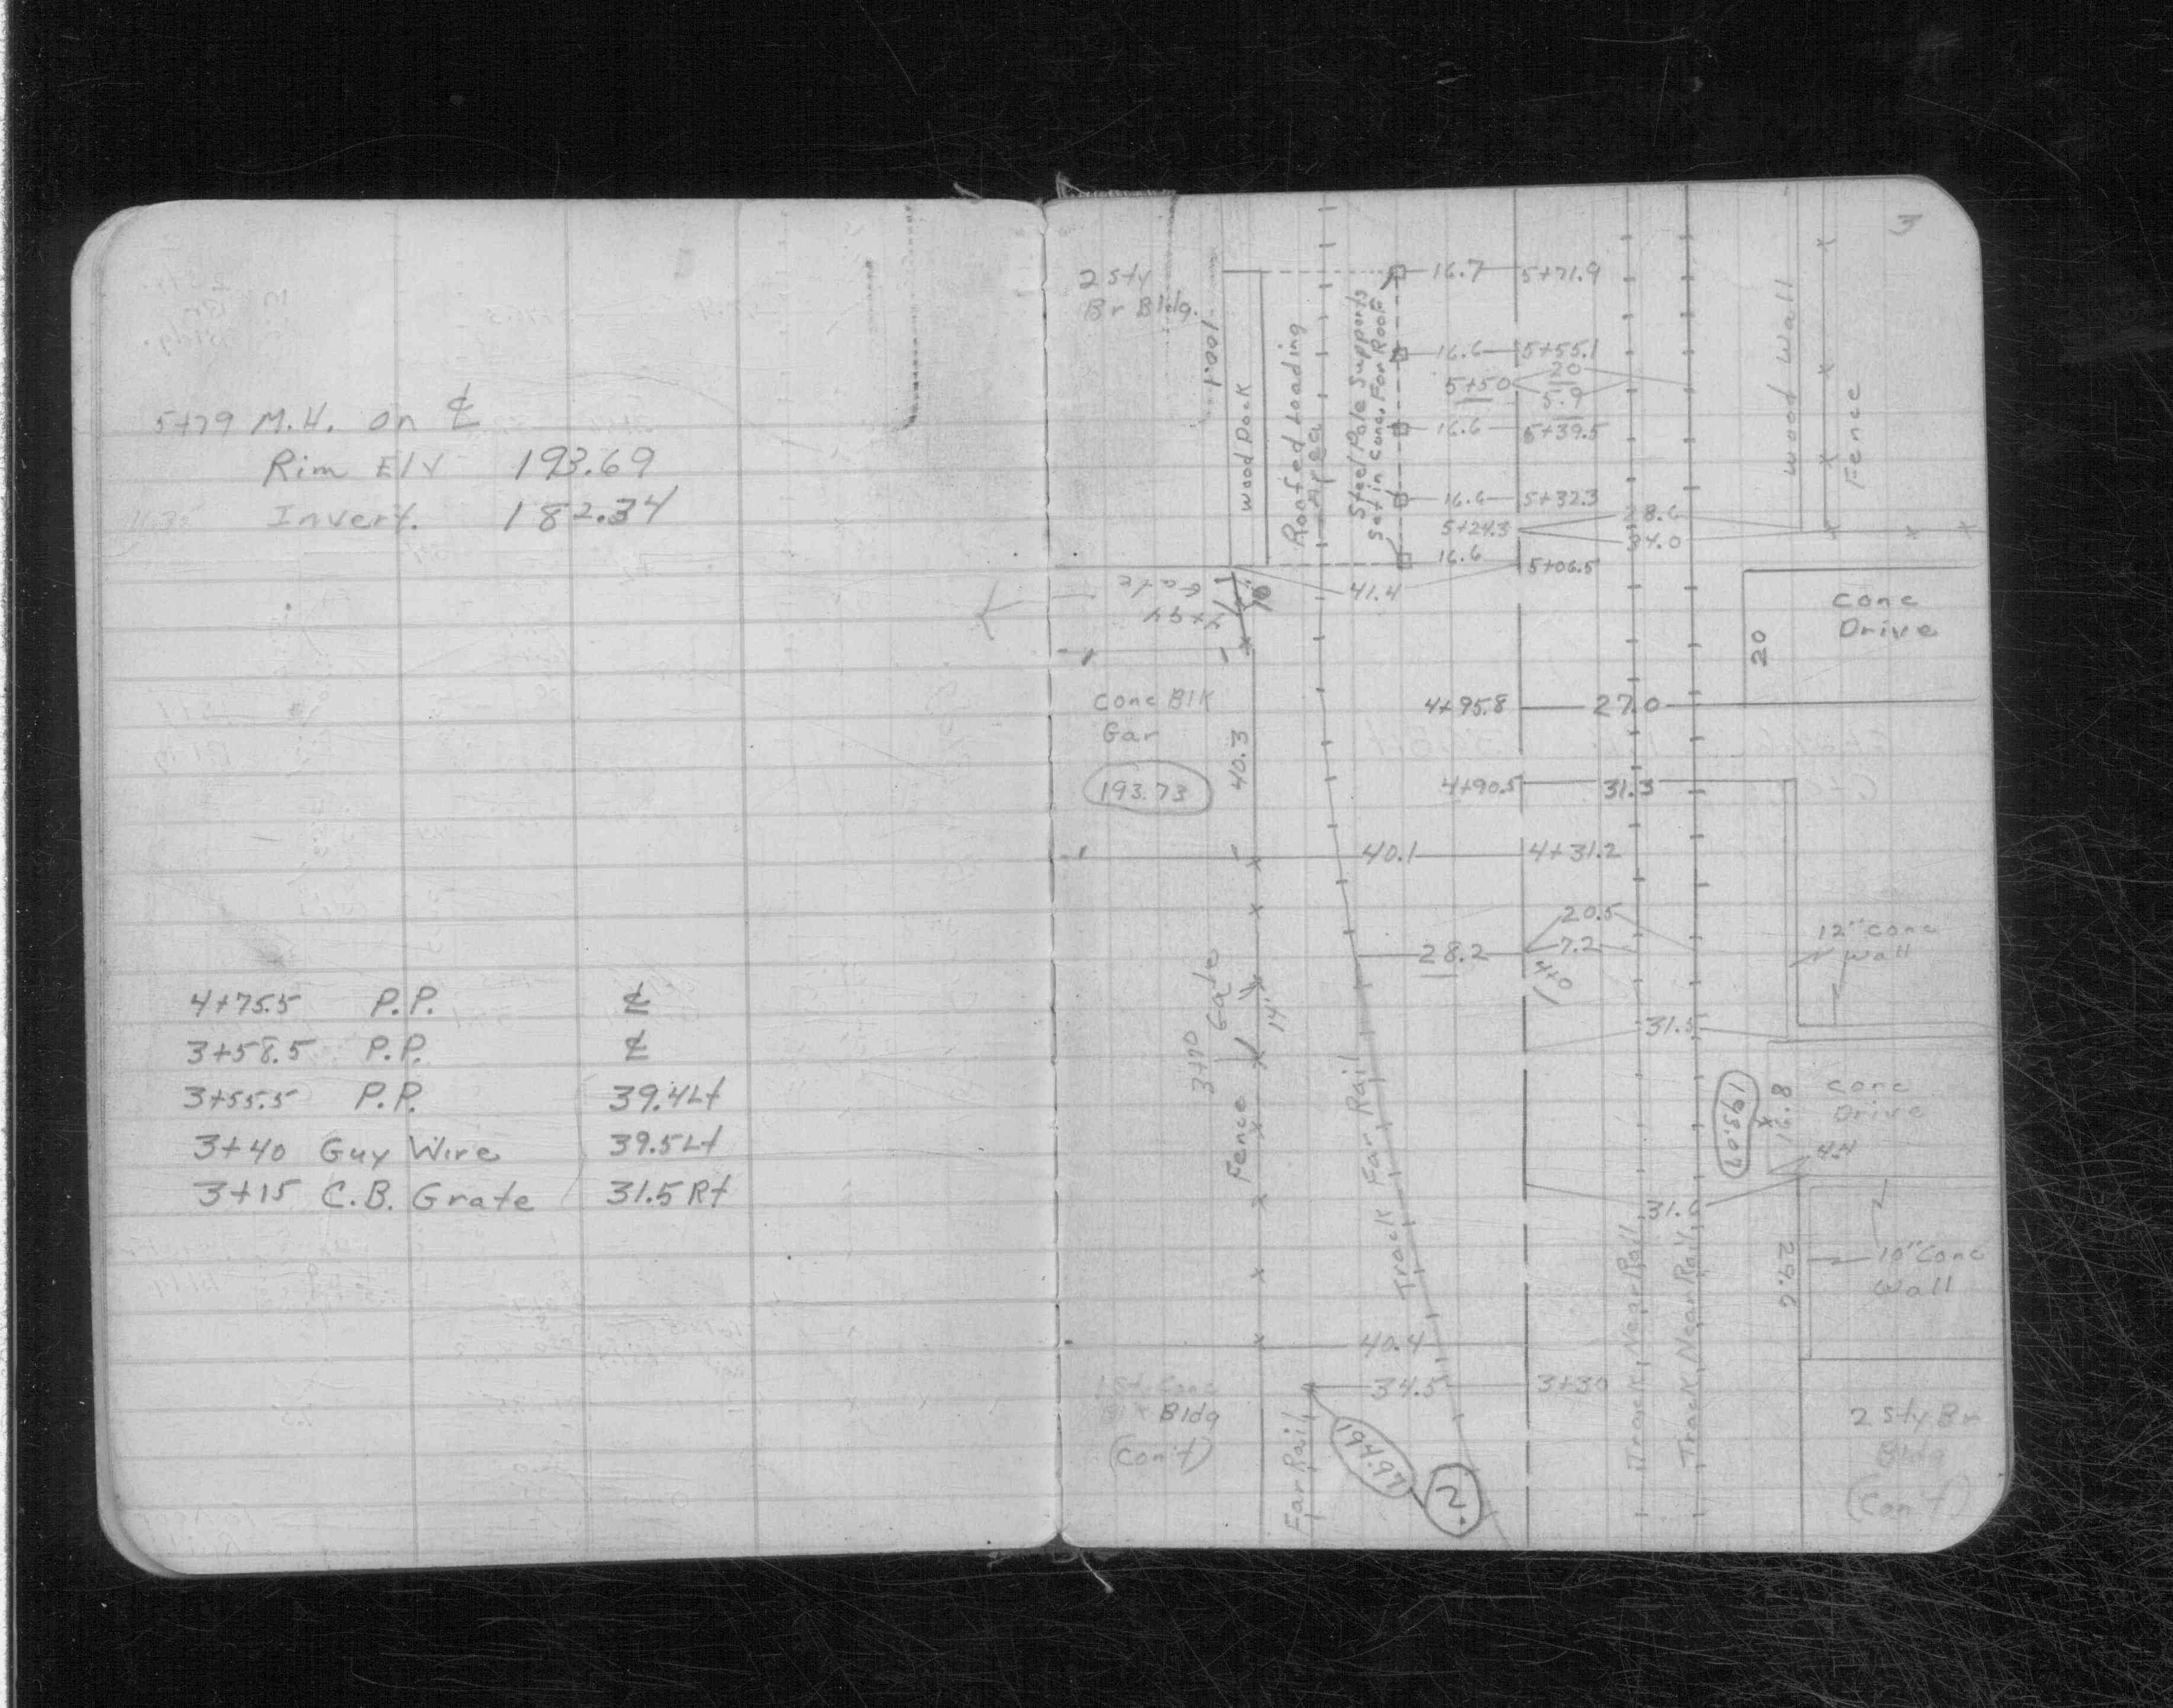 5+79 M.H. on ℄
Rim Elv 193.69
11.35 Invert. 182.34
4+75.5 P.P. ℄
3+58.5 P.P. ℄
3+55.5 P.P. 39.4 Lt
3+40 Guy Wire 39.5 Lt
3+15 C.B. Grate 31.5 Rt
3
2 sty
Br Bldg.
100.1
Wood Dock
Roofed Loading
Area
Steel Pole Supports
Set in Conc. For Roof
16.7 5+71.9
16.6 5+55.1
20
5+50
5.9
16.6 5+39.5
16.6 5+32.3
28.6
5+24.3
34.0
16.6
5+06.5
41.4
Wood Wall
Fence
Gate
10'
Conc
Drive
20
4+95.8 27.0
Conc Blk
Gar
193.73
40.3
4+90.5 31.3
40.1 4+31.2
20.5
28.2 7.2
4+0
12" Conc
Wall
3+70
Gate
14'
Fence
Track Far Rail
31.5
193.07
16.8
Conc
Drive
4.4
31.6
29.6
10" Conc
Wall
Track Near Rail
Track Near Rail
40.4
34.5 3+30
1 Sty Conc
Blk Bldg
(Con't)
Far Rail
194.97
2
2 Sty Br
Bldg
(Con't)